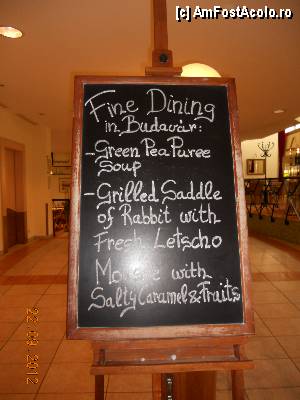 (c) AmFostAcolo.ro
Fine Dining
in Budavár:
- Green Pea Puree
Soup
- Grilled Saddle
of Rabbit with
Fresh Letscho
Mousse with
Salty Caramel & Fruits
22.09.2012